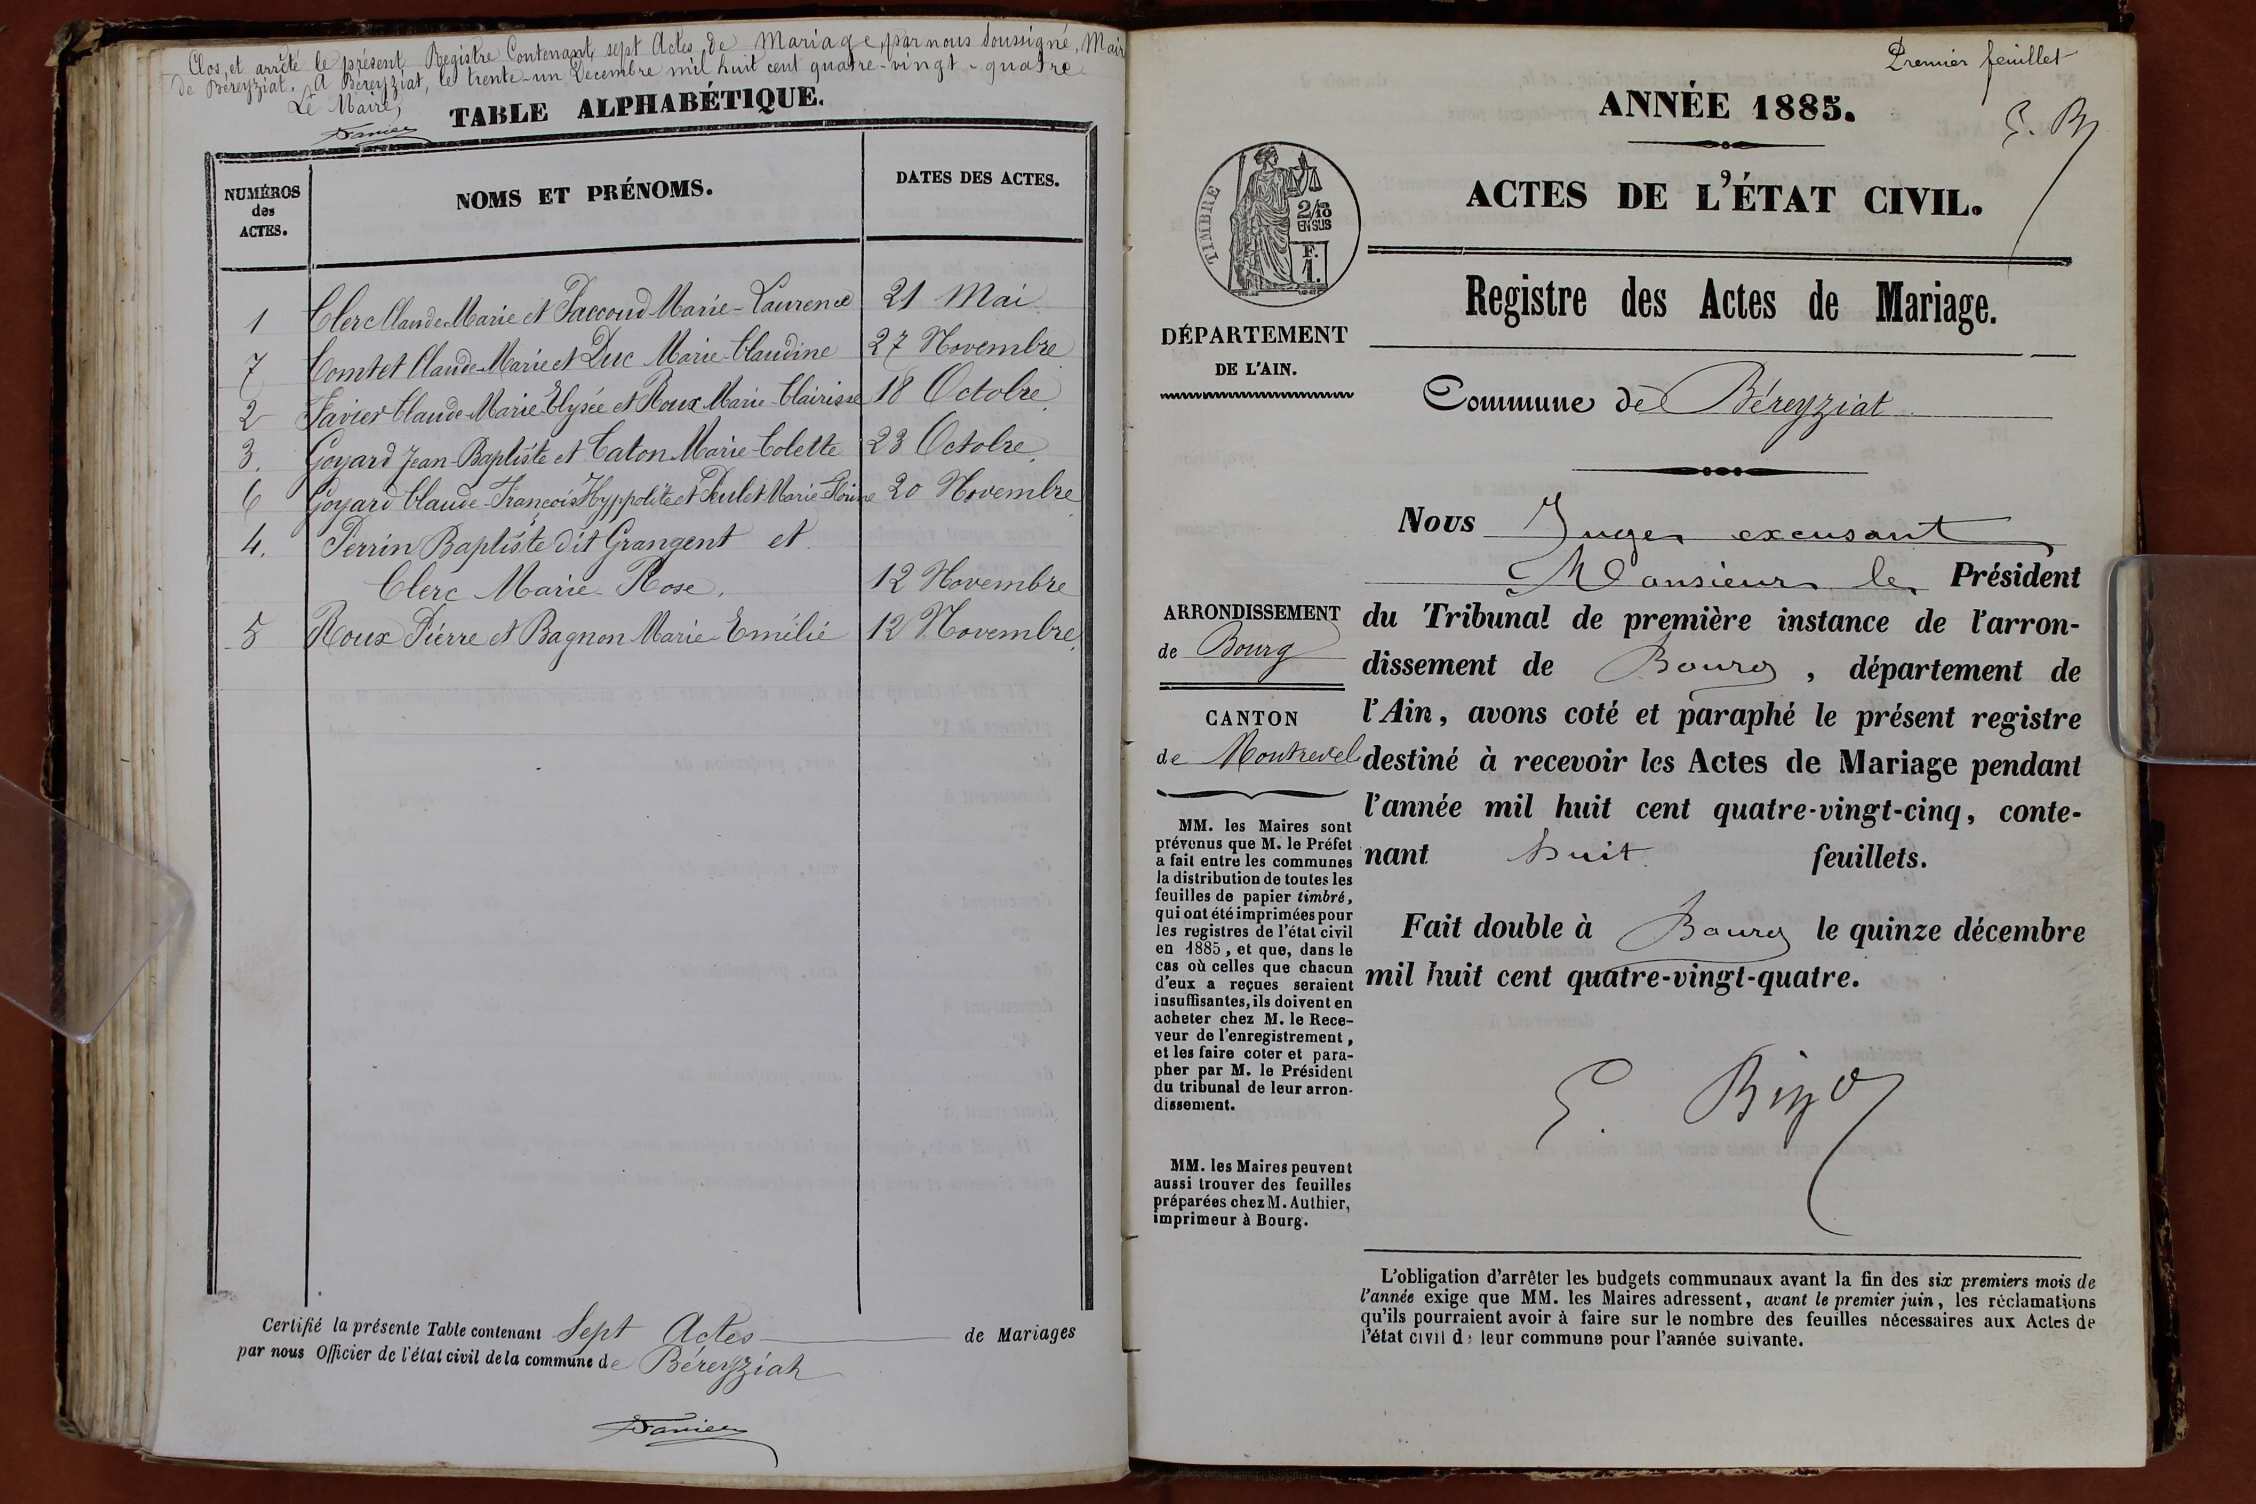 Clos, et arrêté le présent Registre Contenant sept Actes de Mariage, par nous soussigné, Mair
de Béreyziat. A Béreyziat, le trente-un Décembre mil huit cent quatre-vingt-quatre
Le Maire,
TABLE ALPHABÉTIQUE.
NUMÉROS
des
ACTES.
NOMS ET PRÉNOMS.
DATES DES ACTES.
1 Clerc Claude-Marie et Paccoud Marie-Laurence 21 Mai
7 Comtet Claude-Marie et Duc Marie-Claudine 27 Novembre
2 Favier Claude-Marie Elysée et Roux Marie-Clairisse 18 Octobre.
3. Goyard Jean-Baptiste et Caton Marie-Colette 23 Octobre.
6 Goyard Claude-François Hyppolite et Marie 20 Novembre
4. Perrin Baptiste dit Grangent et
Clerc Marie-Rose. 12 Novembre
5 Roux Pierre et Bagnon Marie-Emélie 12 Novembre.
Certifié la présente Table contenant Sept Actes de Mariages
par nous Officier de l'état civil de la commune de Béreyziat
Premier feuillet
E. B
ANNÉE 1885.
ACTES DE L'ÉTAT CIVIL.
TIMBRE
2/10
EN SUS
F.
1.
Registre des Actes de Mariage.
DÉPARTEMENT
DE L'AIN.
Commune de Béreyziat
Nous Juge excusant
Monsieur le Président
du Tribunal de première instance de l'arron-
dissement de Bourg, département de
l'Ain, avons coté et paraphé le présent registre
destiné à recevoir les Actes de Mariage pendant
l'année mil huit cent quatre-vingt-cinq, conte-
nant huit feuillets.
Fait double à Bourg le quinze décembre
mil huit cent quatre-vingt-quatre.
ARRONDISSEMENT
de Bourg
CANTON
de Montrevel
MM. les Maires sont
prévenus que M. le Préfet
a fait entre les communes
la distribution de toutes les
feuilles de papier timbré,
qui ont été imprimées pour
les registres de l'état civil
en 1885, et que, dans le
cas où celles que chacun
d'eux a reçues seraient
insuffisantes, ils doivent en
acheter chez M. le Rece-
veur de l'enregistrement,
et les faire coter et para-
pher par M. le Président
du tribunal de leur arron-
dissement.
MM. les Maires peuvent
aussi trouver des feuilles
préparées chez M. Authier,
imprimeur à Bourg.
L'obligation d'arrêter les budgets communaux avant la fin des six premiers mois de
l'année exige que MM. les Maires adressent, avant le premier juin, les réclamations
qu'ils pourraient avoir à faire sur le nombre des feuilles nécessaires aux Actes de
l'état civil de leur commune pour l'année suivante.